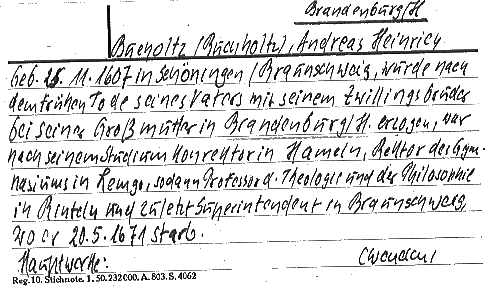 Brandenburg/H
Bucholtz (Buchholtz), Andreas Heinrich
Geb. 25. 11. 1607 in Schöningen / Braunschweig, wurde nach
dem frühen Tode seines Vaters mit seinem Zwillingsbruder
bei seiner Großmutter in Brandenburg/H. erzogen, war
nach seinem Studium Konrektor in Hameln, Rektor des Gym-
nasiums in Lemgo, sodann Professor d. Theologie und der Philosophie
in Rinteln und zuletzt Superintendent in Braunschweig,
wo er 20.5.1671 starb.
Hauptwerke:
Reg. 10. Stichnote. 1. 50. 232000. A. 803. S. 4062